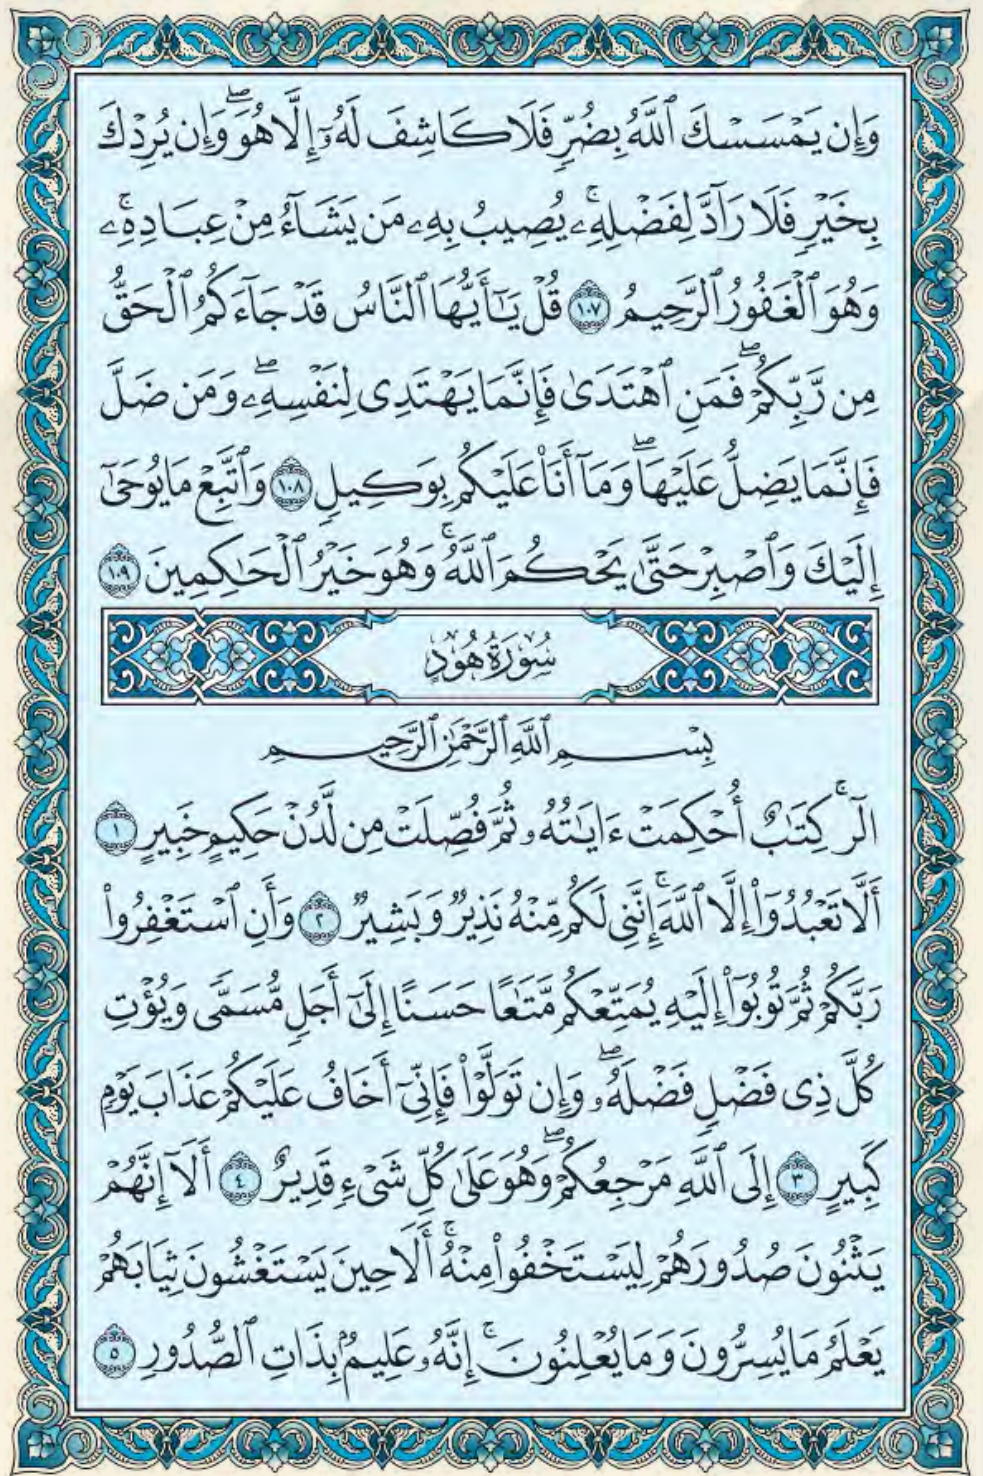 وَإِن يَمْسَسْكَ ٱللَّهُ بِضُرٍّ فَلَا كَاشِفَ لَهُۥٓ إِلَّا هُوَۖ وَإِن يُرِدْكَ
بِخَيْرٍ فَلَا رَآدَّ لِفَضْلِهِۦۚ يُصِيبُ بِهِۦ مَن يَشَآءُ مِنْ عِبَادِهِۦۚ
وَهُوَ ٱلْغَفُورُ ٱلرَّحِيمُ ١٠٧ قُلْ يَٰٓأَيُّهَا ٱلنَّاسُ قَدْ جَآءَكُمُ ٱلْحَقُّ
مِن رَّبِّكُمْۖ فَمَنِ ٱهْتَدَىٰ فَإِنَّمَا يَهْتَدِى لِنَفْسِهِۦۖ وَمَن ضَلَّ
فَإِنَّمَا يَضِلُّ عَلَيْهَاۖ وَمَآ أَنَا۠ عَلَيْكُم بِوَكِيلٍ ١٠٨ وَٱتَّبِعْ مَا يُوحَىٰٓ
إِلَيْكَ وَٱصْبِرْ حَتَّىٰ يَحْكُمَ ٱللَّهُۚ وَهُوَ خَيْرُ ٱلْحَٰكِمِينَ ١٠٩
سُورَةُ هُودٍ
بِسْمِ ٱللَّهِ ٱلرَّحْمَٰنِ ٱلرَّحِيمِ
الٓرۚ كِتَٰبٌ أُحْكِمَتْ ءَايَٰتُهُۥ ثُمَّ فُصِّلَتْ مِن لَّدُنْ حَكِيمٍ خَبِيرٍ ١
أَلَّا تَعْبُدُوٓا۟ إِلَّا ٱللَّهَۚ إِنَّنِى لَكُم مِّنْهُ نَذِيرٌ وَبَشِيرٌ ٢ وَأَنِ ٱسْتَغْفِرُوا۟
رَبَّكُمْ ثُمَّ تُوبُوٓا۟ إِلَيْهِ يُمَتِّعْكُم مَّتَٰعًا حَسَنًا إِلَىٰٓ أَجَلٍ مُّسَمًّى وَيُؤْتِ
كُلَّ ذِى فَضْلٍ فَضْلَهُۥۖ وَإِن تَوَلَّوْا۟ فَإِنِّىٓ أَخَافُ عَلَيْكُمْ عَذَابَ يَوْمٍ
كَبِيرٍ ٣ إِلَى ٱللَّهِ مَرْجِعُكُمْۖ وَهُوَ عَلَىٰ كُلِّ شَىْءٍ قَدِيرٌ ٤ أَلَآ إِنَّهُمْ
يَثْنُونَ صُدُورَهُمْ لِيَسْتَخْفُوا۟ مِنْهُۚ أَلَا حِينَ يَسْتَغْشُونَ ثِيَابَهُمْ
يَعْلَمُ مَا يُسِرُّونَ وَمَا يُعْلِنُونَۚ إِنَّهُۥ عَلِيمٌۢ بِذَاتِ ٱلصُّدُورِ ٥